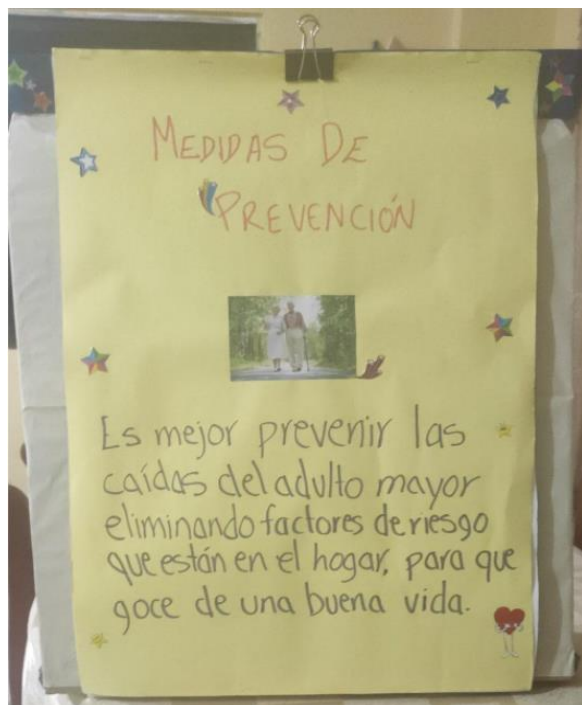 MEDIDAS DE
PREVENCIÓN
Es mejor prevenir las
caídas del adulto mayor
eliminando factores de riesgo
que están en el hogar, para que
goce de una buena vida.